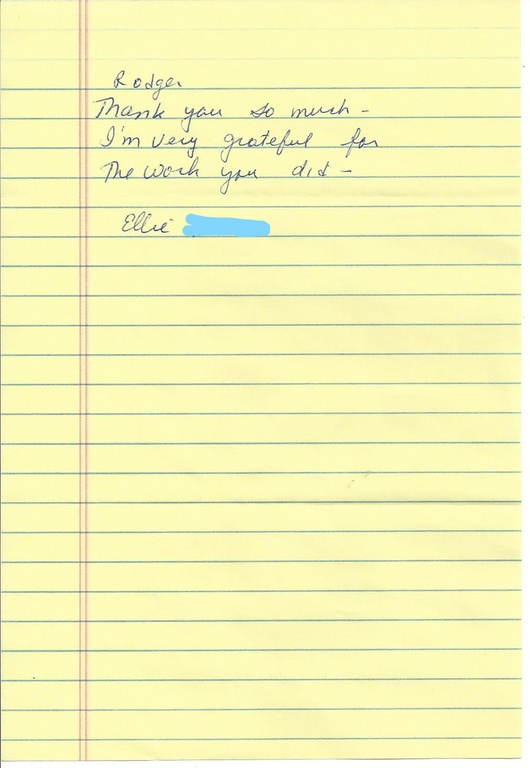 Rodger
Thank you so much –
I'm very grateful for
The work you did –
Ellie